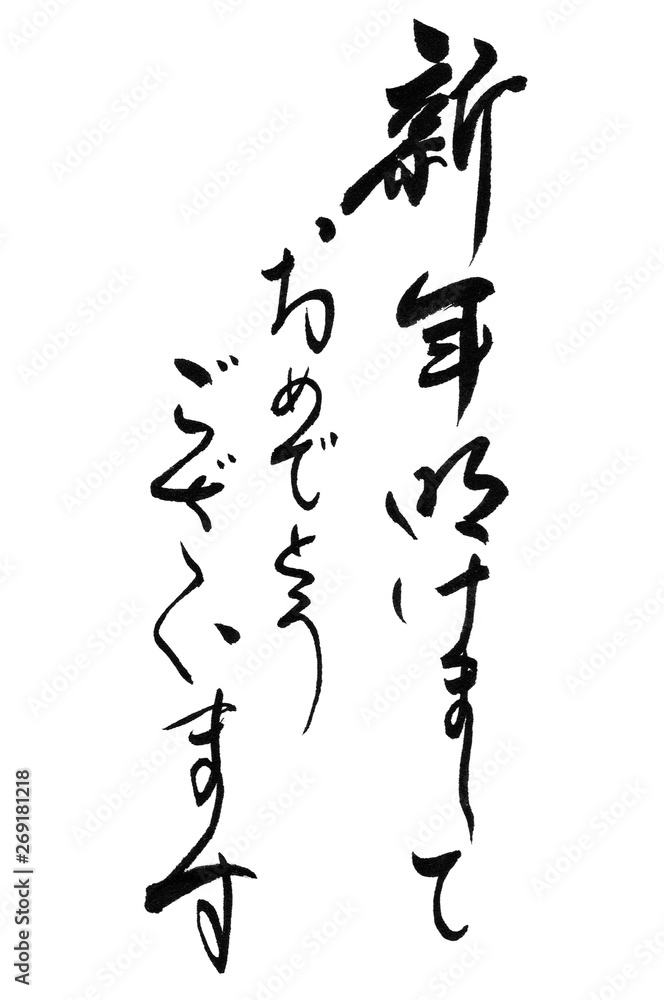 新年明けまして
おめでとう
ございます
Adobe Stock
#269181218